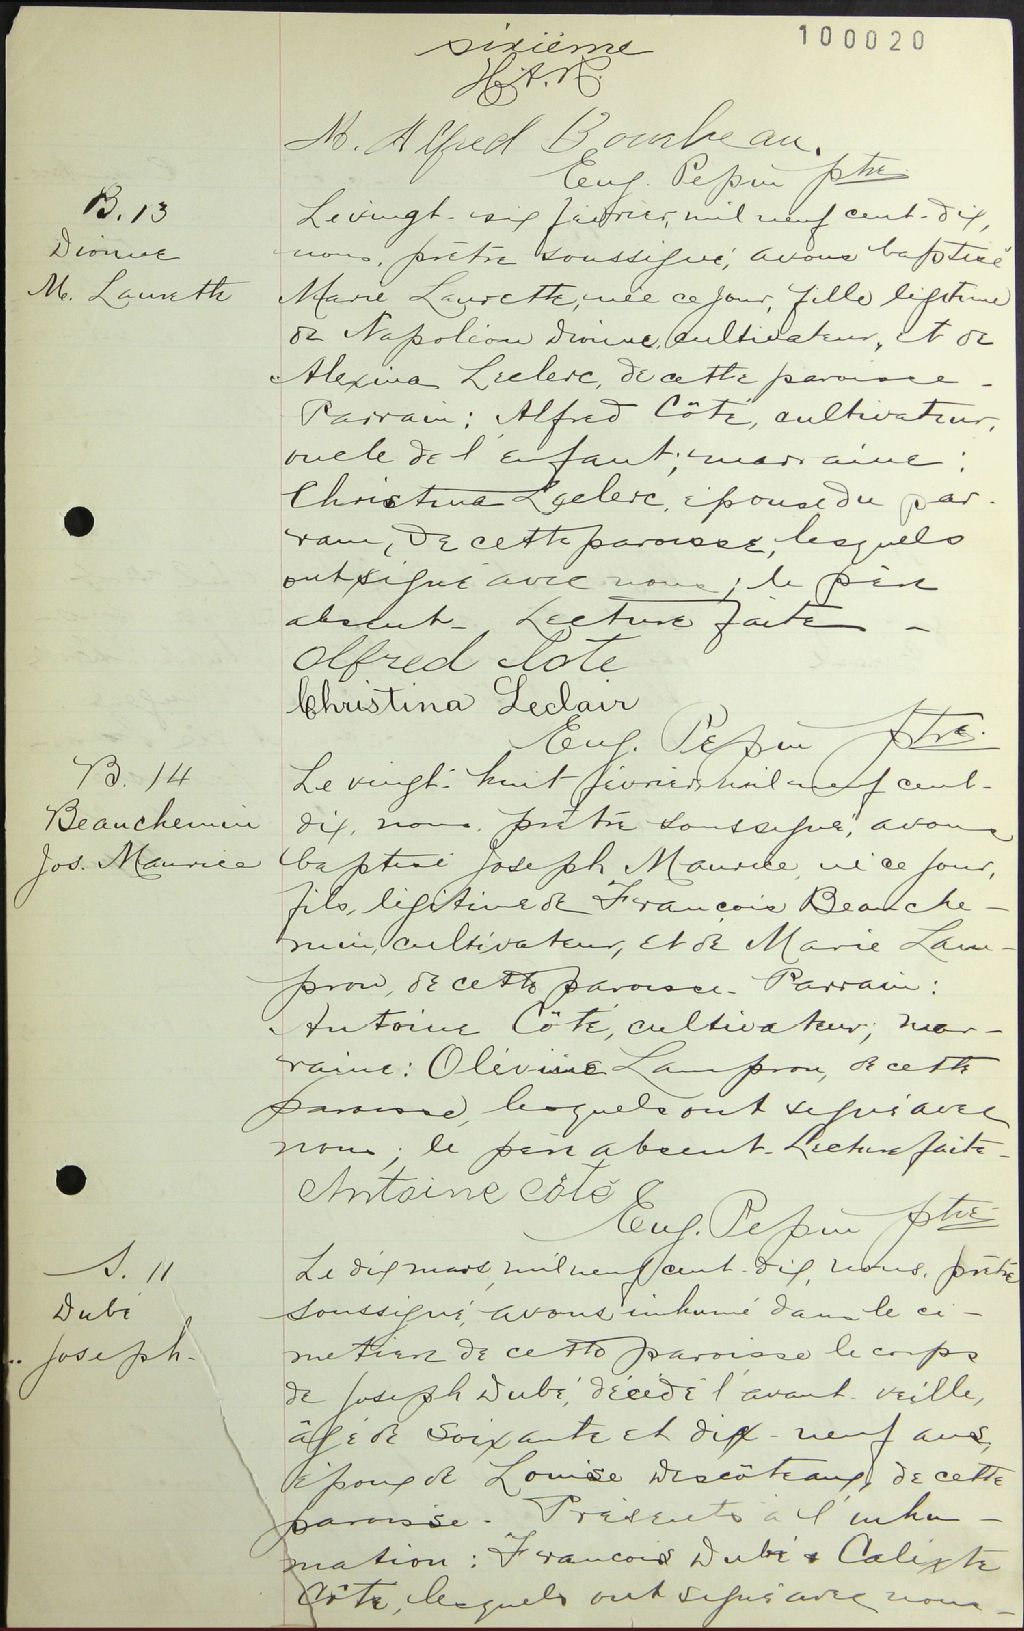 100020
sixième
H.A.R.
M. Alfred Bourbeau.
Eug. Pepin ptre
B. 13
Dionne
M. Laurette
Le vingt-six février, mil neuf cent-dix,
nous, prêtre soussigné, avons baptisé
Marie Laurette, née ce jour, fille légitime
de Napoléon Dionne, cultivateur, et de
Alexina Leclerc, de cette paroisse -
Parrain: Alfred Côté, cultivateur,
oncle de l'enfant; marraine:
Christina Leclerc, épouse du par-
rain, de cette paroisse, lesquels
ont signé avec nous; le père
absent - Lecture faite -
Alfred Cote
Christina Leclair
Eug. Pepin ptre.
B. 14
Beauchemin
Jos. Maurice
Le vingt-huit février, mil neuf cent-
dix, nous, prêtre soussigné, avons
baptisé Joseph Maurice, né ce jour,
fils, légitime de François Beauche-
min, cultivateur, et de Marie Lam-
pron, de cette paroisse - Parrain:
Antoine Côté, cultivateur; mar-
raine: Olévine Lampron, de cette
paroisse, lesquels ont signé avec
nous; le père absent - Lecture faite -
Antoine Côté
Eug. Pepin ptre
S. 11
Dubé
Joseph -
Le dix mars, mil neuf cent-dix, nous, prêtre
soussigné, avons inhumé dans le ci-
metière de cette paroisse le corps
de Joseph Dubé, décédé l'avant-veille,
âgé de soixante et dix-neuf ans,
époux de Louise Descôteaux, de cette
paroisse - Présents à l'inhu-
mation: François Dubé & Calixte
Côté, lesquels ont signé avec nous -